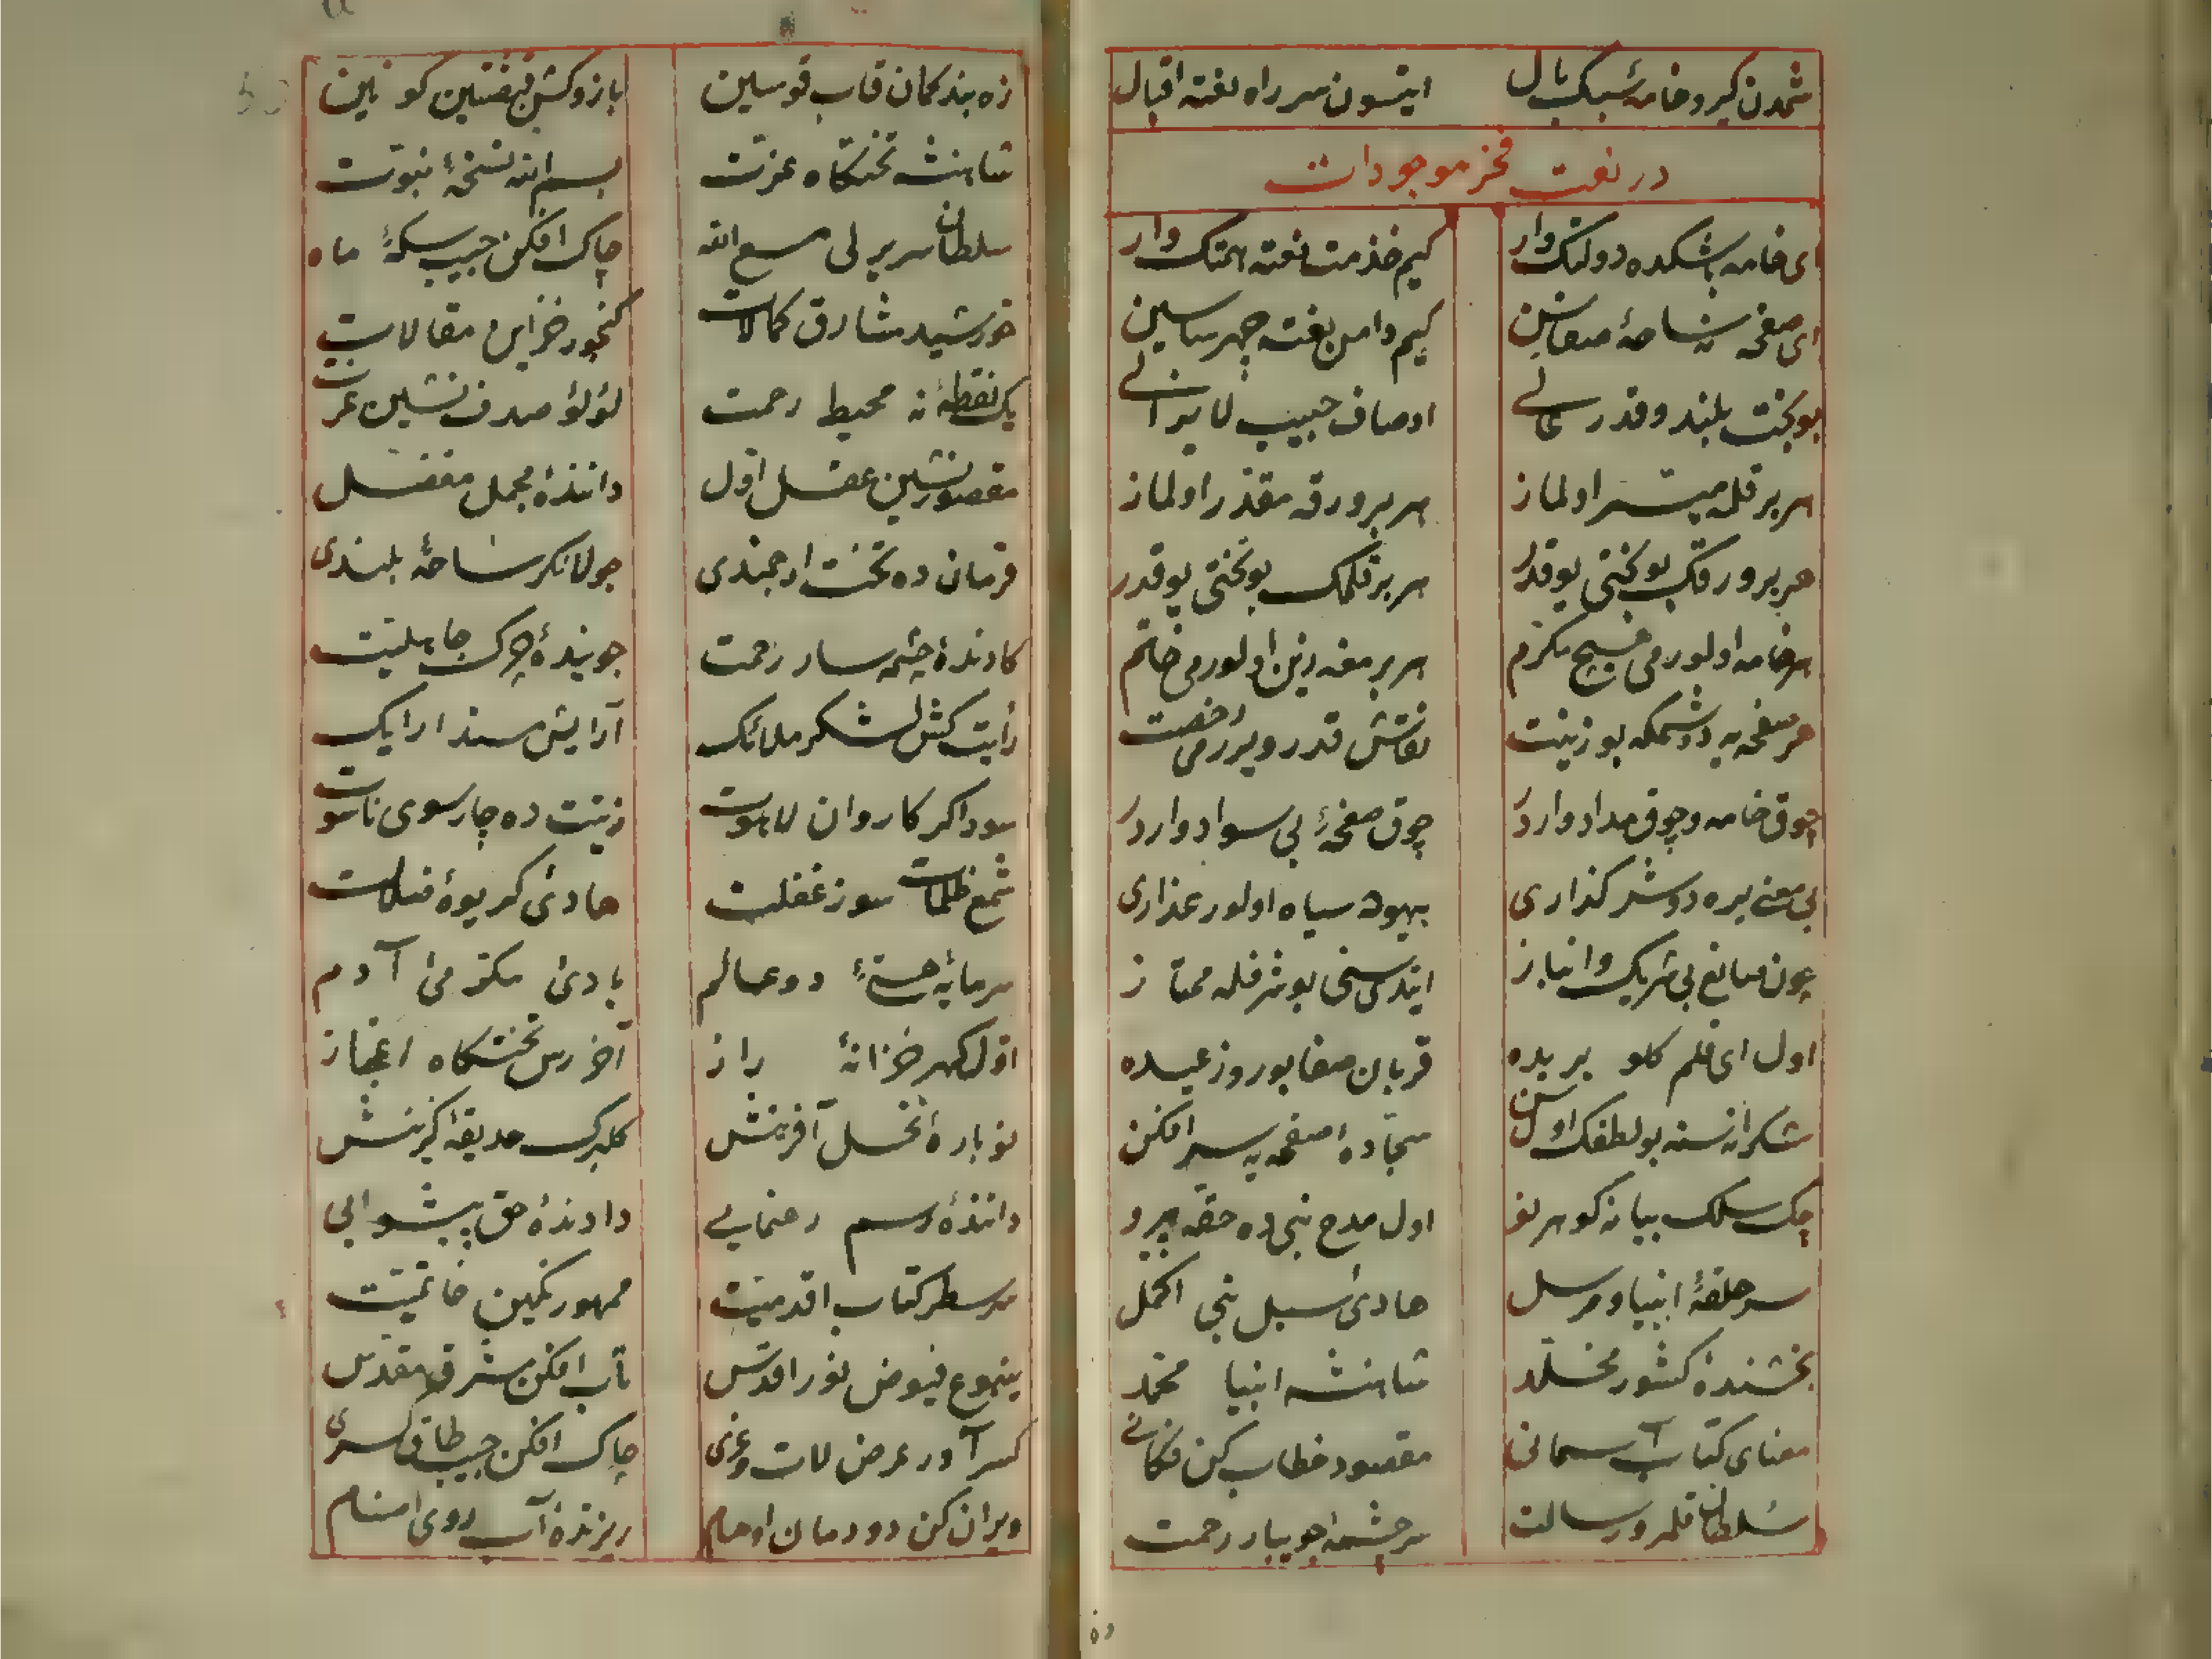 شمدن كیرو خامهٔ سبك بال ایتسون سر راه نعته اقبال
در نعت فخر موجودات
ای خامه باشكده دولتك وار كیم خذمت نعته همتك وار
ای صفحه نه ساحهٔ صفاسین كیم دامن نعته چهره ساسین
بو بخت بلند و قدر عالی اوصاف حبیب لا یزالی
هر بر قله میسر اولماز هر بر ورقه مقدر اولماز
هر بر ورقك بو بختی یوقدر هر بر قلمك بو بختی یوقدر
هر خامه اولور می مسیح مكرم هر بر معه زین اولور می خاتم
هر صفحه یه دوشمكه بو زینت نقاش قدر ویرر می رخصت
چوق خامه و چوق مداد واردر چوق صفحهٔ بی سواد واردر
بی معنی یره دوشر كذاری بیهوده سیاه اولور عذاری
چون صانع بی شریك و انباز ایتدی سنی بو شرفله ممتاز
اول ای قلم كلو بریده قربان صفا بو روز عیده
شكرانه سنه بو لطفك اولسن سجادهٔ صفحه یه سر افكن
چك سلك بیانه كوهر نو اول مدح نبی ده حقه پیرو
سر حلقهٔ انبیا و مرسل هادیٔ سبل نبی اكمل
بخشندهٔ كشور مخلد شاهنشه انبیا محمد
معنای كتاب آسمانی مقصود خطاب كن فكانی
سلطان قلمرو رسالت سرچشمهٔ جویبار رحمت
زه بند كمان قاب قوسین بازوكش قبضتین كونین
شاهنشه تختكاه عزت بسم الله نسخهٔ نبوت
سلطان سریر لی مع الله چاك افكن جیب سكهٔ ماه
خورشید مشارق كمالات كنجور خزاین مقالات
یك نقطهٔ نه محیط رحمت لؤلؤ صدف نشین عزت
مقصورنشین عقل اول دانندهٔ مجمل مفصل
فرمان ده تخت ارجمندی جولانكر ساحهٔ بلندی
كاوندهٔ چشمه سار رحمت جویندهٔ چرك جاهلیت
رایت كش لشكر ملائك آرایش مسند ارایك
سوداكر كاروان لاهوت زینت ده چارسوی ناسوت
شمع ظلمات سوز غفلت هادیٔ كریوهٔ ضلالت
سرمایهٔ هستیٔ دو عالم بادیٔ مكرمیٔ آدم
اول كهر خزانهٔ راز آخر رس تختكاه اعجاز
نوبارهٔ نخل آفرینش كلبرك حدیقهٔ كزینش
دانندهٔ رسم رهنمایی دادندهٔ حق پیشوایی
سر سطر كتاب اقدمیت ممهور نكین خاتمیت
ینبوع فیوض نور اقدس تاب افكن مشرق مقدس
كسر آور عرض لات و عزی چاك افكن جیب طاق كسری
ویران كن دودمان اوهام ریزندهٔ آب روی اصنام